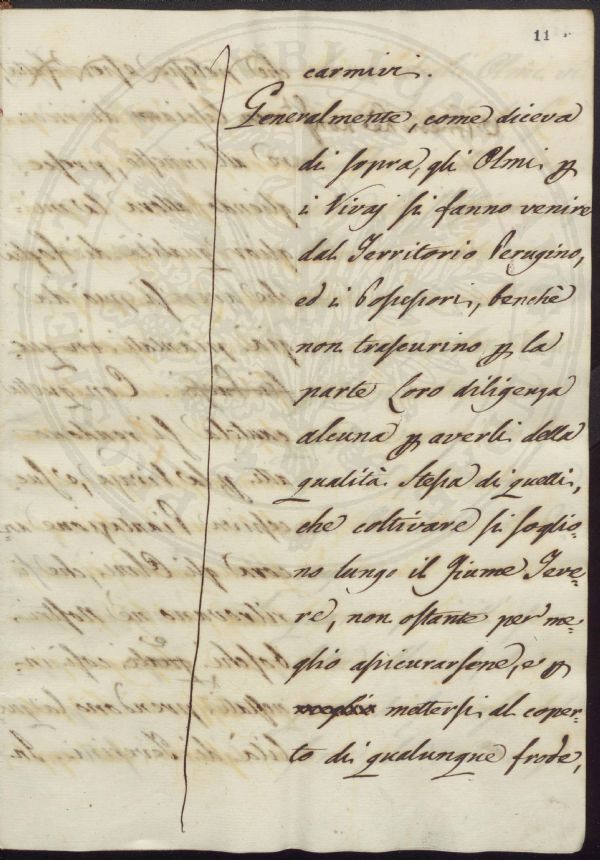 11
carmivi.
Generalmente, come diceva
di sopra, gli Olmi p
i Vivaj si fanno venire
dal Territorio Perugino,
ed i Possessori, benchè
non trascurino p la
parte Loro diligenza
alcuna p averli della
qualità stessa di quelli,
che coltivare si soglio=
no lungo il Fiume Teve=
re, non ostante per me=
glio assicurarsene, e p
mettersi al coper=
to di qualunque frode,